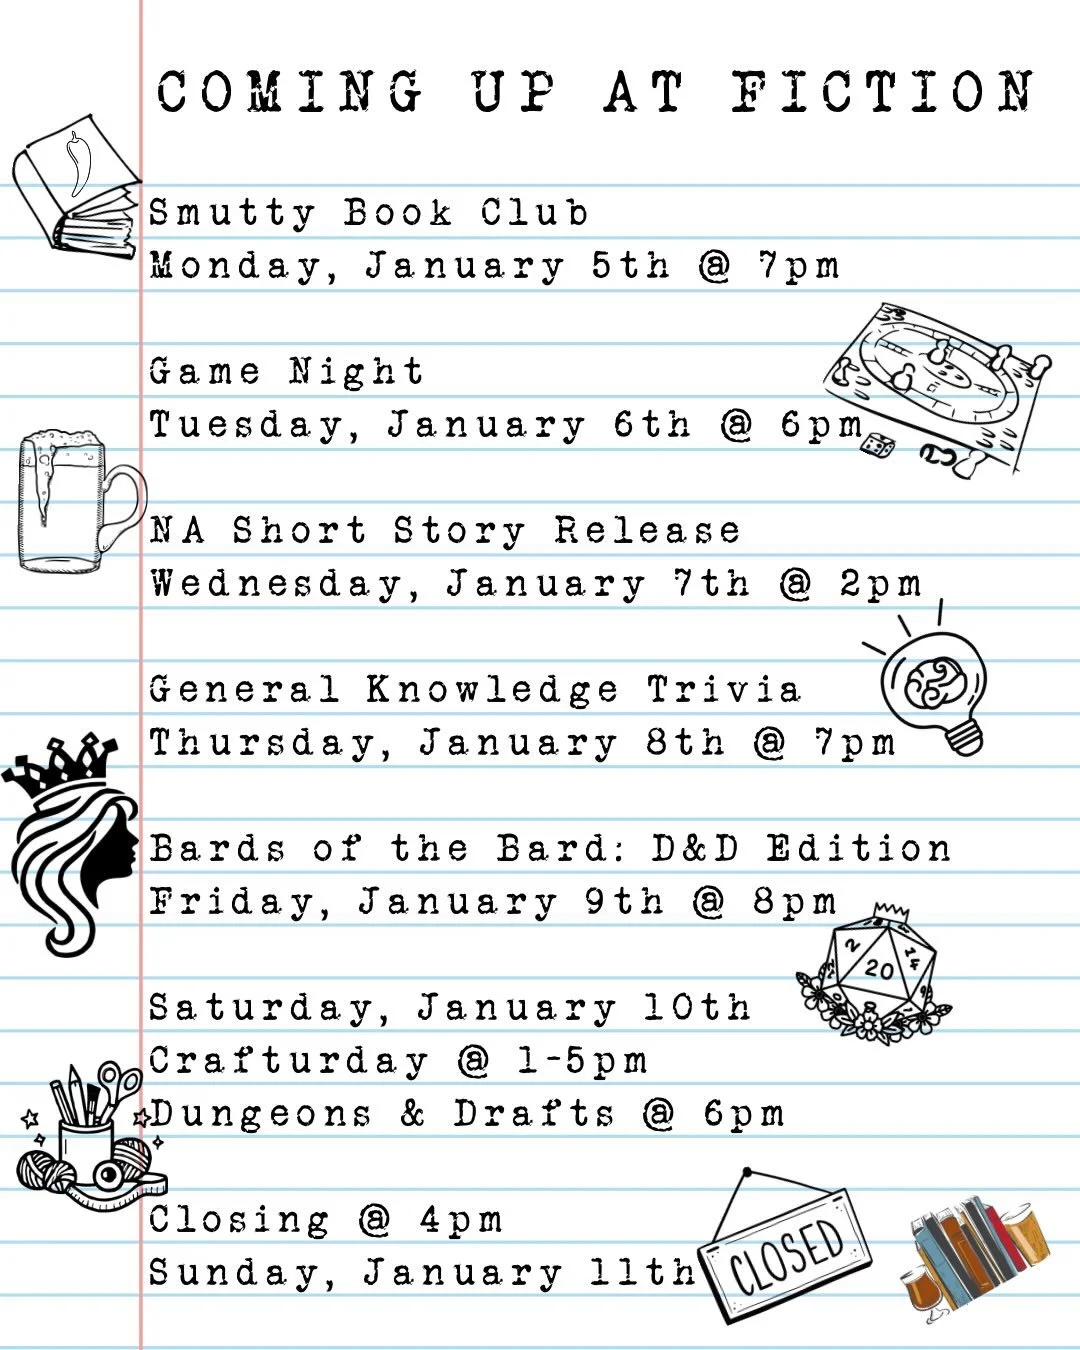 COMING UP AT FICTION
Smutty Book Club
Monday, January 5th @ 7pm
Game Night
Tuesday, January 6th @ 6pm
NA Short Story Release
Wednesday, January 7th @ 2pm
General Knowledge Trivia
Thursday, January 8th @ 7pm
Bards of the Bard: D&D Edition
Friday, January 9th @ 8pm
2
20
14
Saturday, January 10th
Crafturday @ 1-5pm
Dungeons & Drafts @ 6pm
Closing @ 4pm
Sunday, January 11th
CLOSED